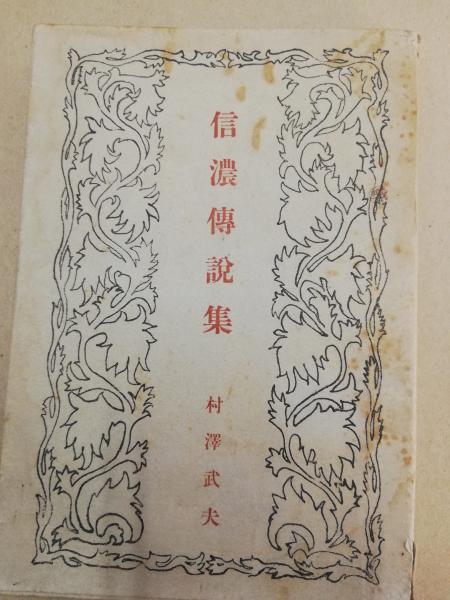 信濃傳說集
村澤武夫